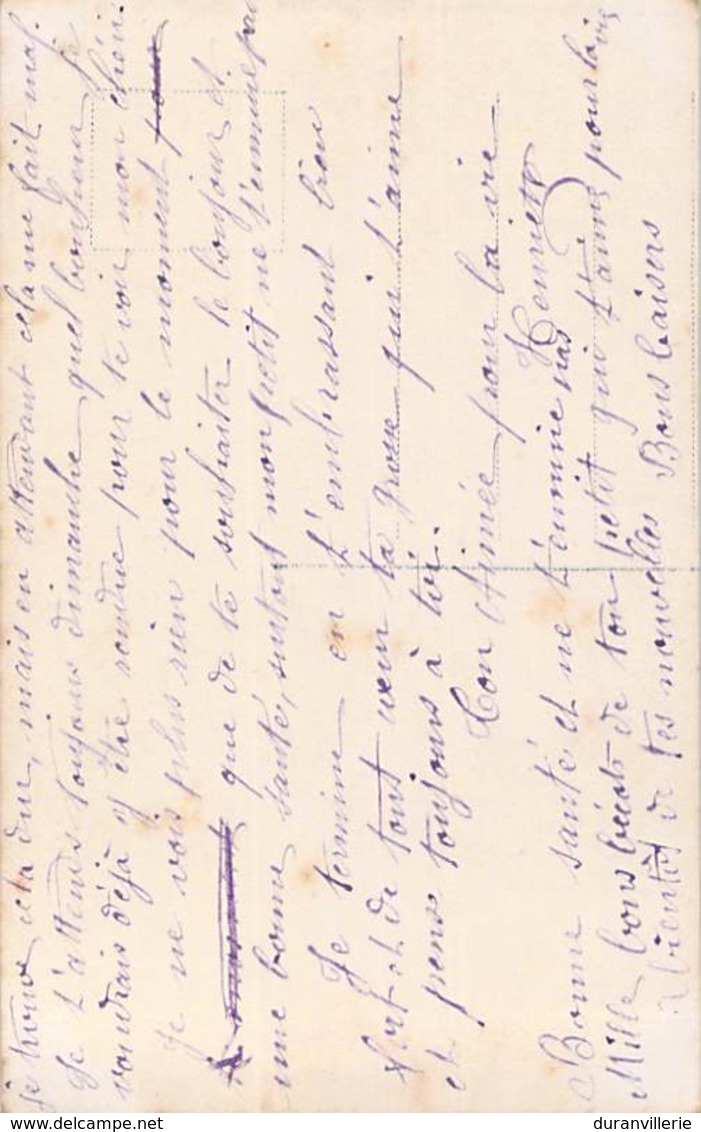 je trouve cela dur, mais en attendant cela me fait mal.
Je t'attends toujours dimanche quel bonheur je
voudrais déjà y être rendue pour te voir mon chéri.
Je ne vois plus rien pour le moment pour
que de te souhaiter le bonjour et
une bonne santé, surtout mon petit ne t'ennuie pas
Je termine en t'embrassant bien
fort et de tout cœur ta grosse qui t'aime
et pense toujours à toi.
Ton Aimée pour la vie
Henriette
Bonne santé et ne t'ennuie pas
Mille bons bécots de ton petit qui t'aime pour la vie
A bientôt de tes nouvelles Bons baisers
duranvillerie